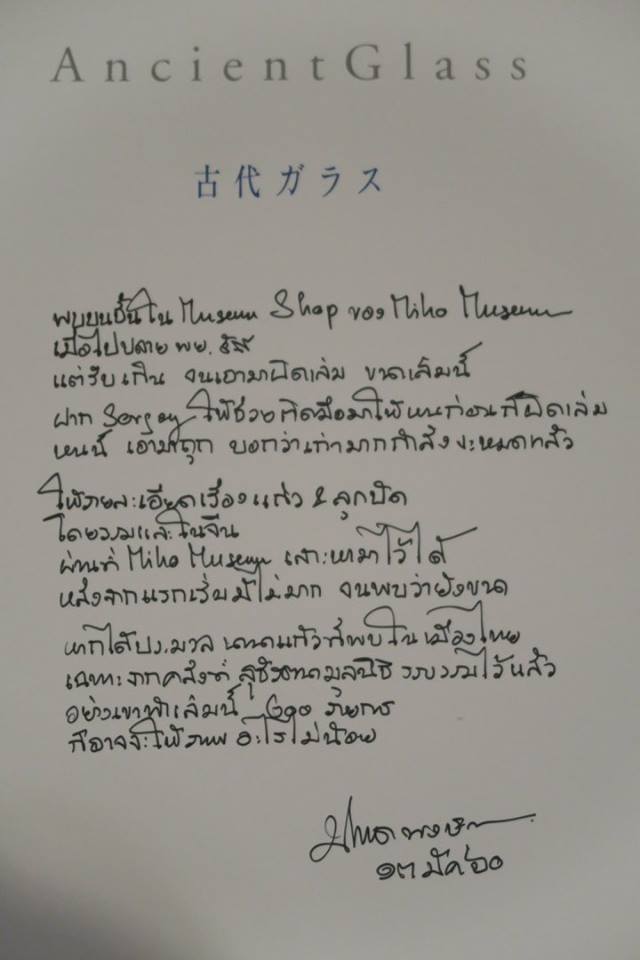 AncientGlass
古代ガラス
พบบนชั้นใน Museum Shop ของ Miho Museum
เมื่อไปปลาย พย. ๕๙
แต่รีบเกิน จนเอามาผิดเล่ม ขาดเล่มนี้
ฝาก ให้ช่วยถือมาให้หนก่อนก็ผิดเล่ม
หนนี้ เอามาถูก บอกว่าเก่ามากกำลังจะหมดแล้ว
ให้รายละเอียดเรื่องแก้ว & ลูกปัด
โดยรวมและในจีน
ผ่านที่ Miho Museum เสาะหามาไว้ได้
หลังจากแรกเริ่มมีไม่มาก จนพบว่ายังขาด
หากได้ประมวล แก้วที่พบในเมืองไทย
เฉพาะจากคลังที่ มูลนิธิ รวบรวมไว้แล้ว
อย่างเขาทำเล่มนี้
ก็อาจจะให้ภาพอะไรไม่น้อย
๑๓ มีค ๖๐